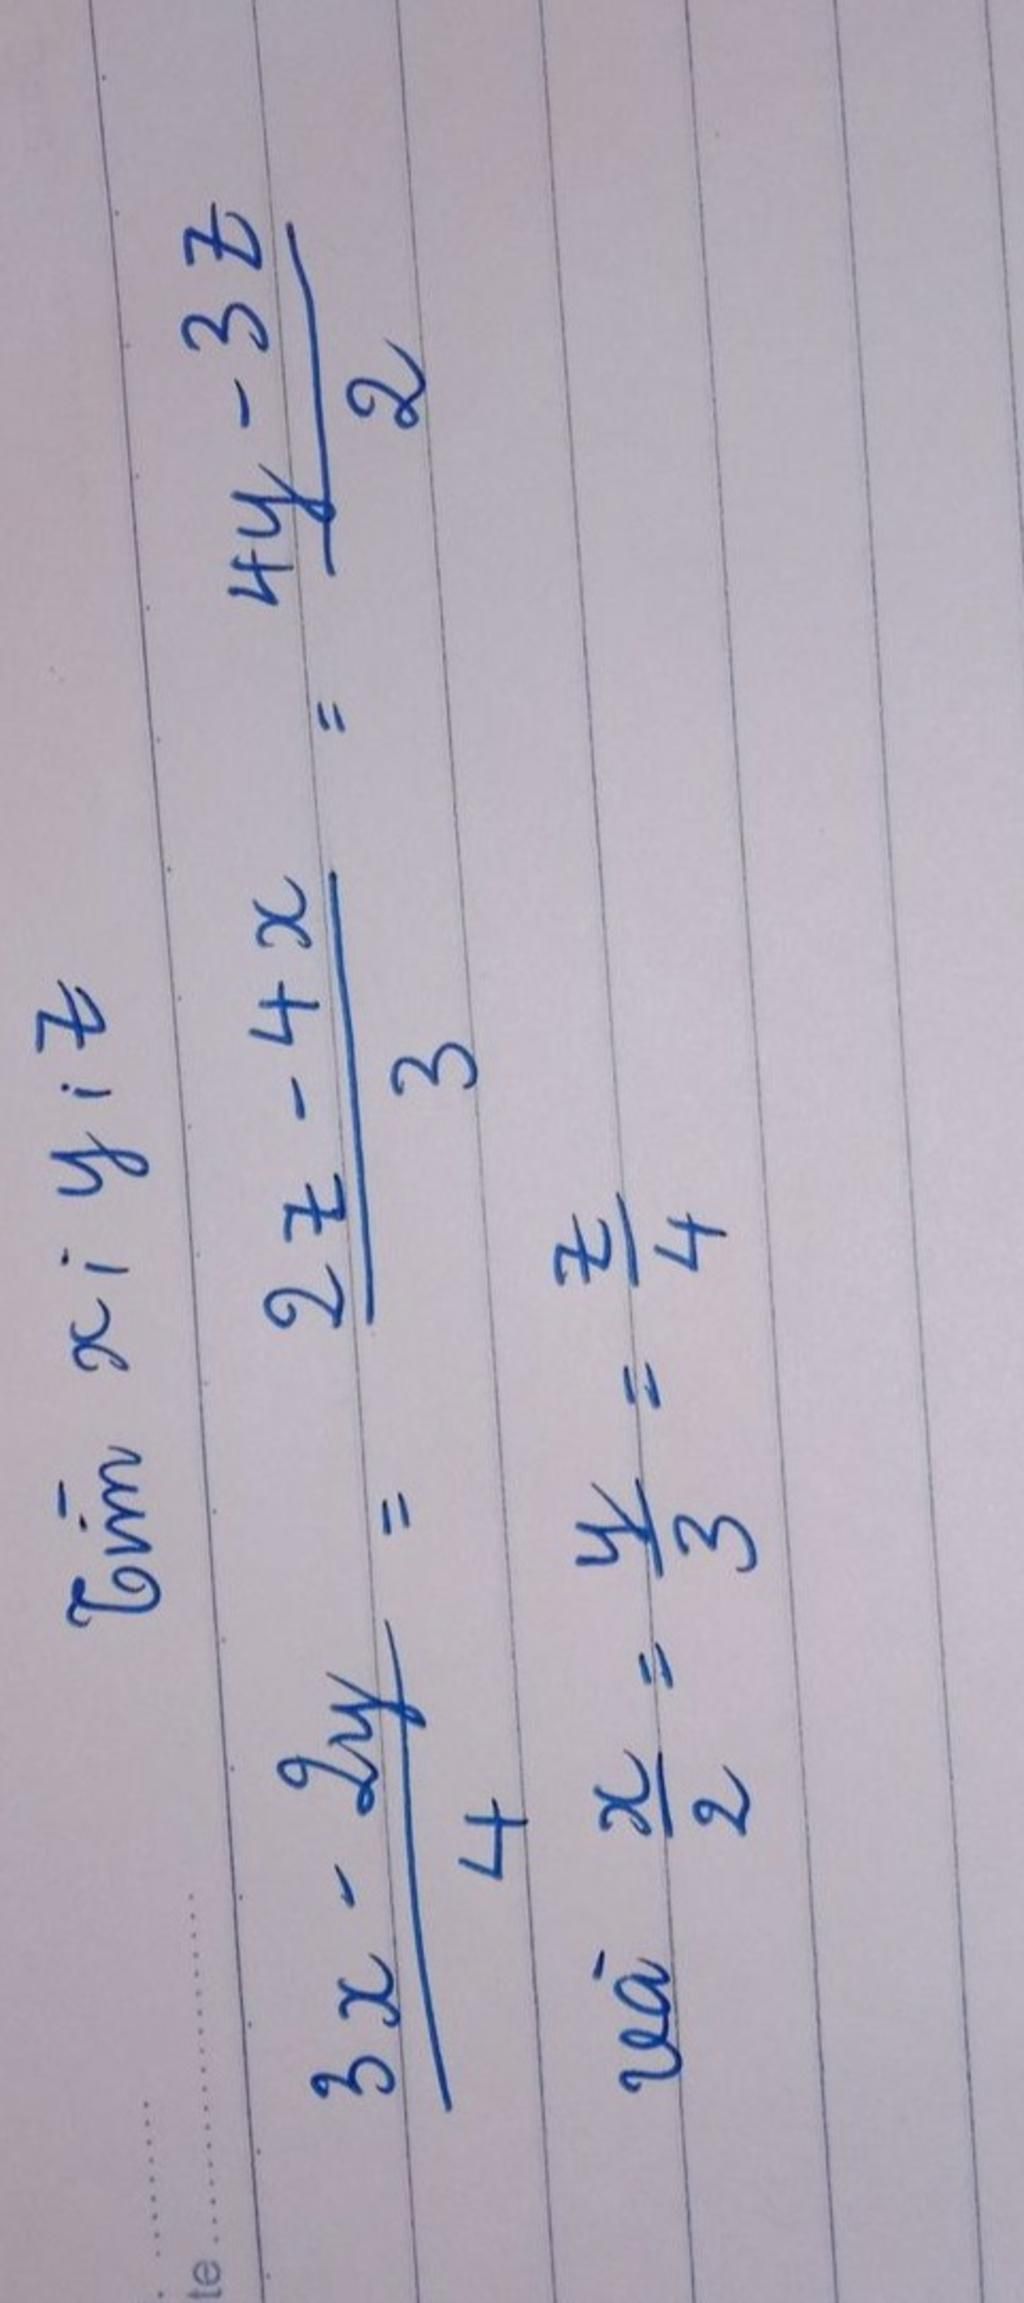 te
Tìm x ; y ; z
3x - 2y / 4 = 2z - 4x / 3 = 4y - 3z / 2
và x/2 = y/3 = z/4